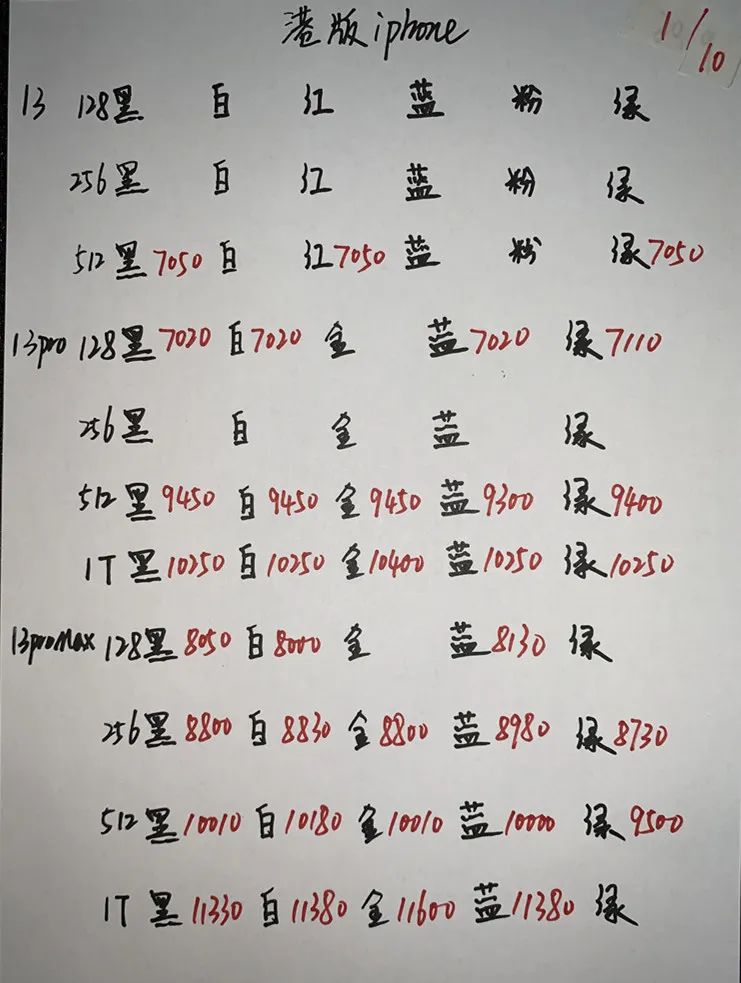 港版iphone 1/10
13 128黑 白 红 蓝 粉 绿
256黑 白 红 蓝 粉 绿
512黑7050 白 红7050 蓝 粉 绿7050
13pro 128黑7020 白7020 金 蓝7020 绿7110
256黑 白 金 蓝 绿
512黑9450 白9450 金9450 蓝9300 绿9400
1T 黑10250 白10250 金10400 蓝10250 绿10250
13proMax 128黑8050 白8000 金 蓝8130 绿
256黑8800 白8830 金8800 蓝8980 绿8730
512黑10010 白10180 金10010 蓝10000 绿9500
1T 黑11330 白11380 金11600 蓝11380 绿